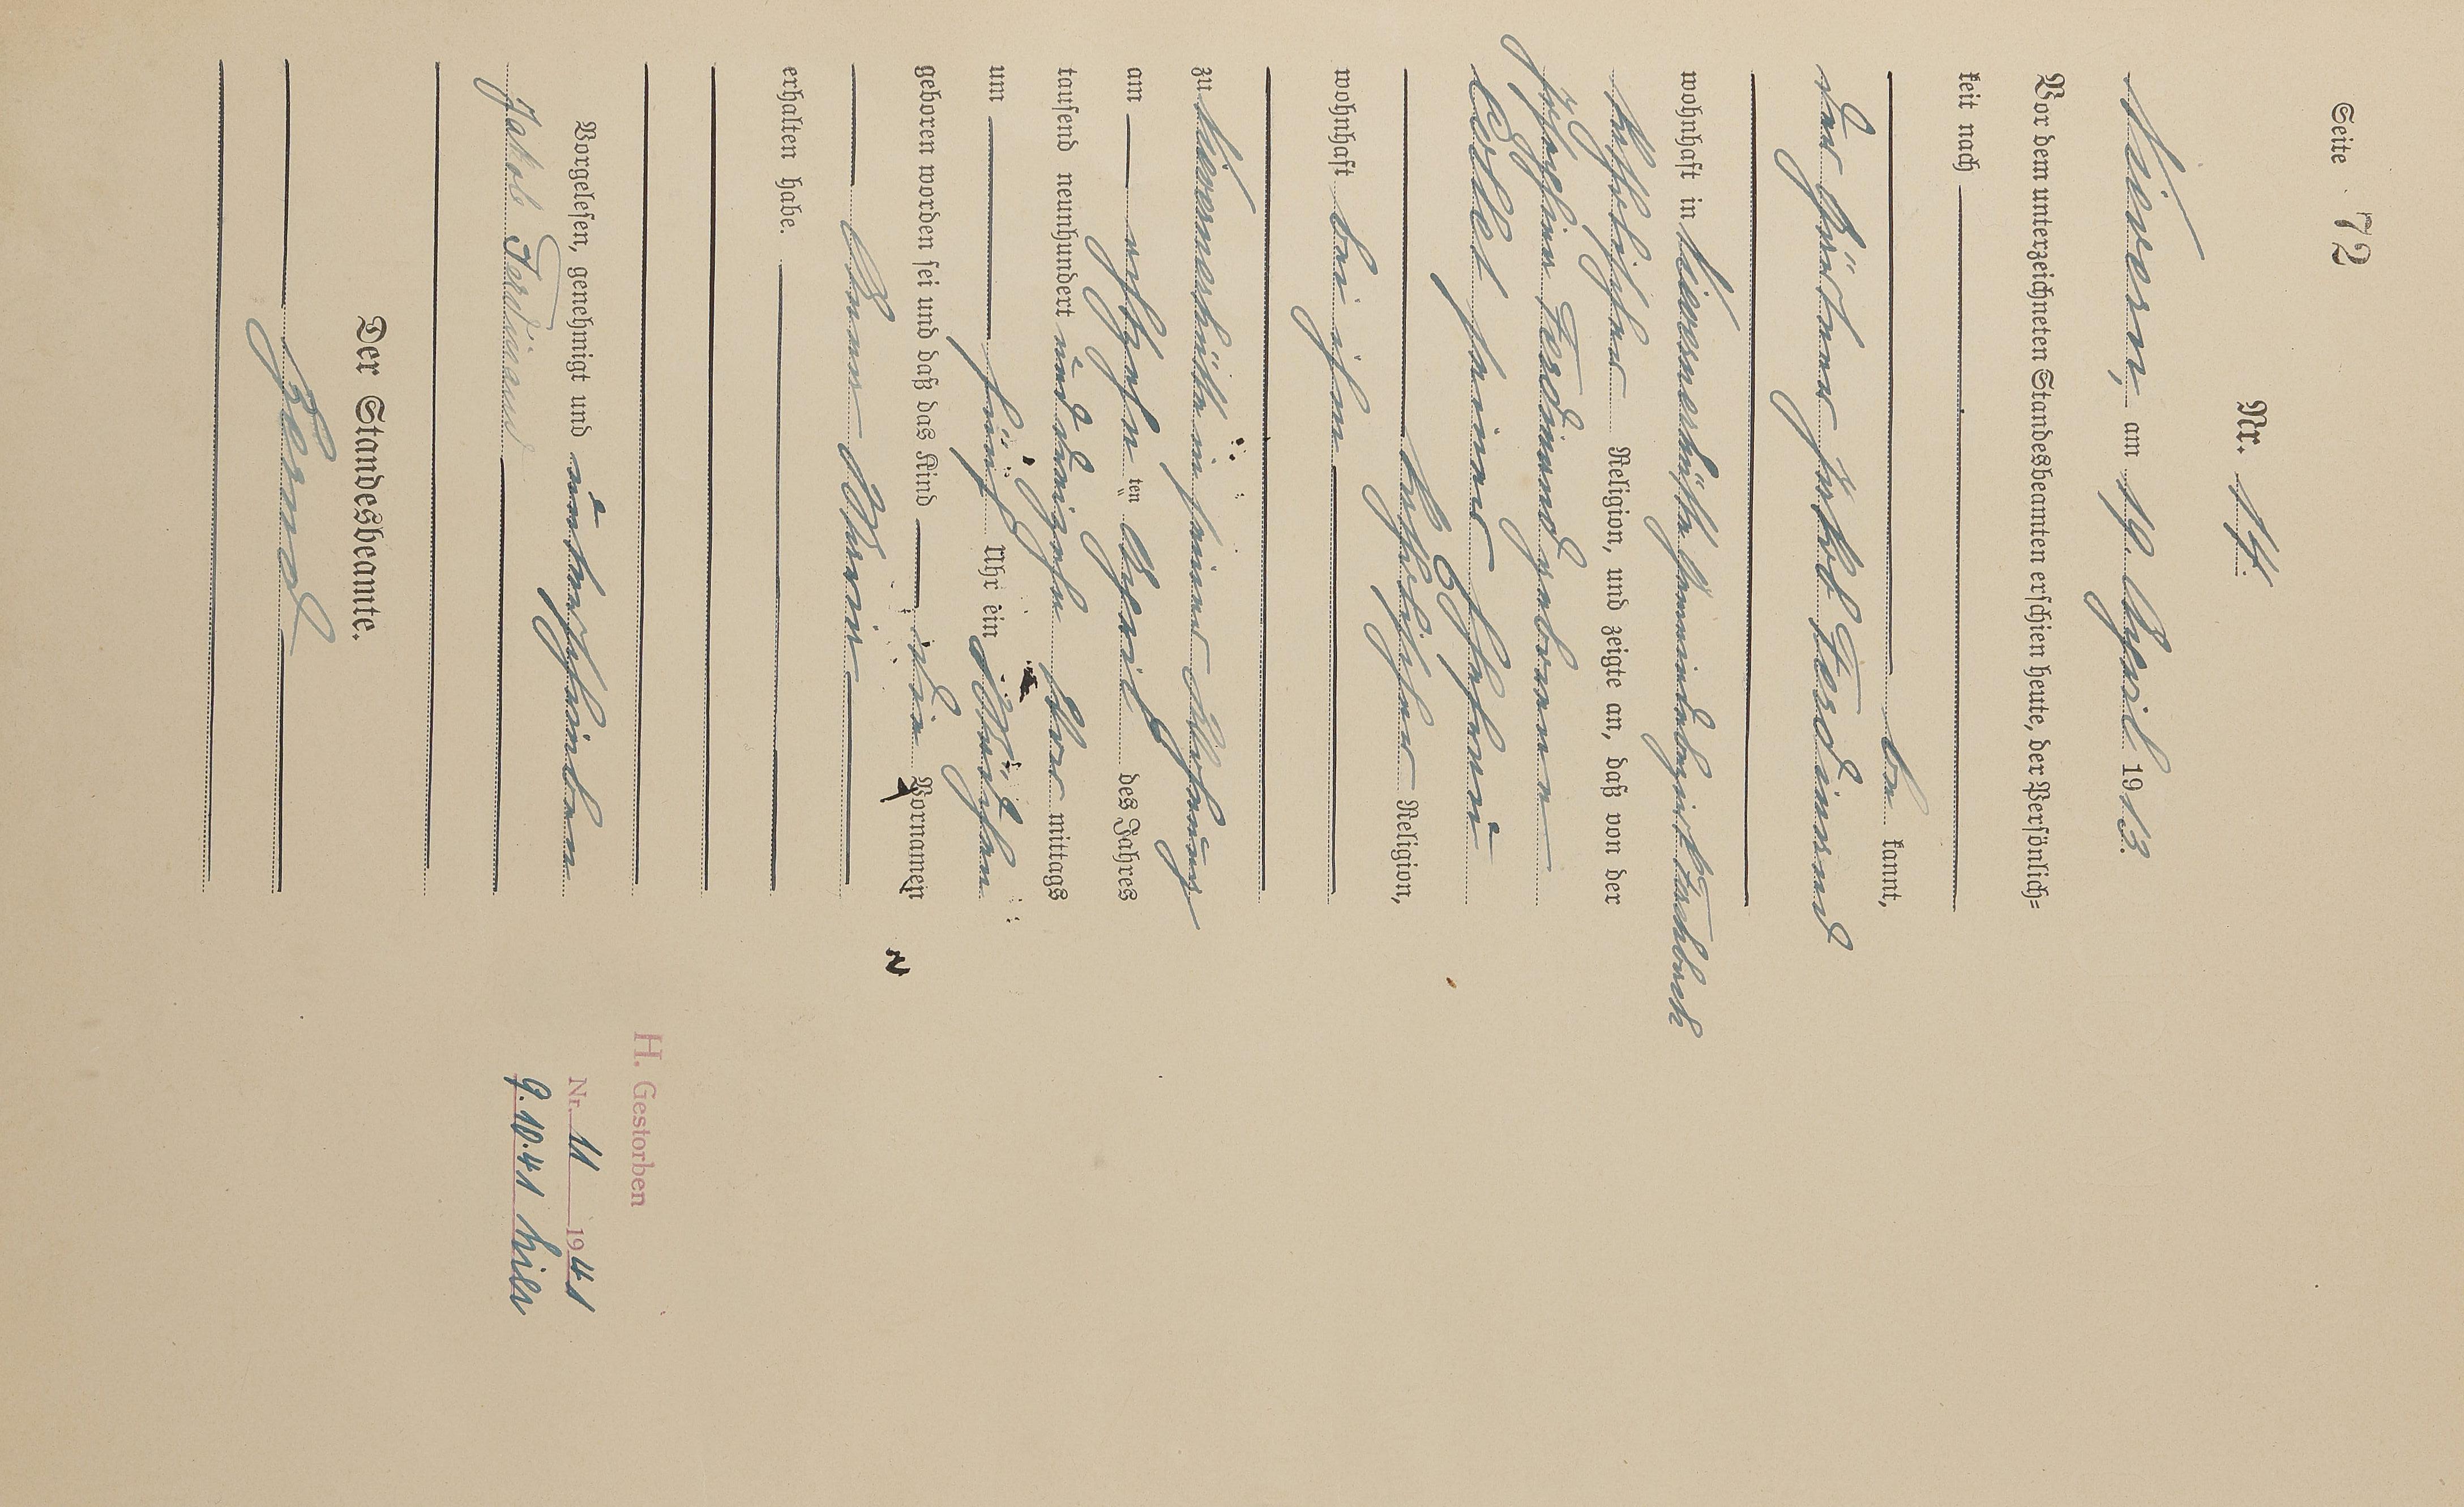 Seite 72
Nr. 14.
Nievern, am 19. April 1913.
Vor dem unterzeichneten Standesbeamten erschien heute, der Persönlich=
keit nach
be kannt,
der Jakob Ferdinand
wohnhaft in Nievernerhütte Gemeindebezirk Fachbach
katholischer Religion, und zeigte an, daß von der
Josephine Ferdinand geborenen
seiner Ehefrau
katholischer Religion,
wohnhaft bei ihm
zu Nievernerhütte in seiner Wohnung
am achtzehn ten April des Jahres
tausend neunhundert und dreizehn Vor mittags
um fünf Uhr ein Mädchen
geboren worden sei und daß das Kind die Vornamen
Anna Maria
erhalten habe.
Vorgelesen, genehmigt und unterschrieben
Jakob Ferdinand
Der Standesbeamte.
H. Gestorben
Nr. 11 1941
9.10.41 hier